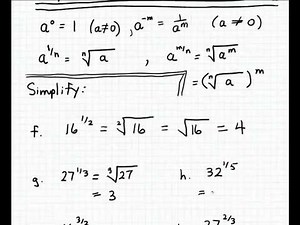 a⁰ = 1 (a≠0), a⁻ᵐ = 1/aᵐ (a ≠ 0)
a^(1/n) = ⁿ√a , a^(m/n) = ⁿ√(aᵐ)
= (ⁿ√a)ᵐ
Simplify:
f. 16^(1/2) = ²√16 = √16 = 4
g. 27^(1/3) = ³√27 h. 32^(1/5)
= 3 =
3/2 27^(2/3)